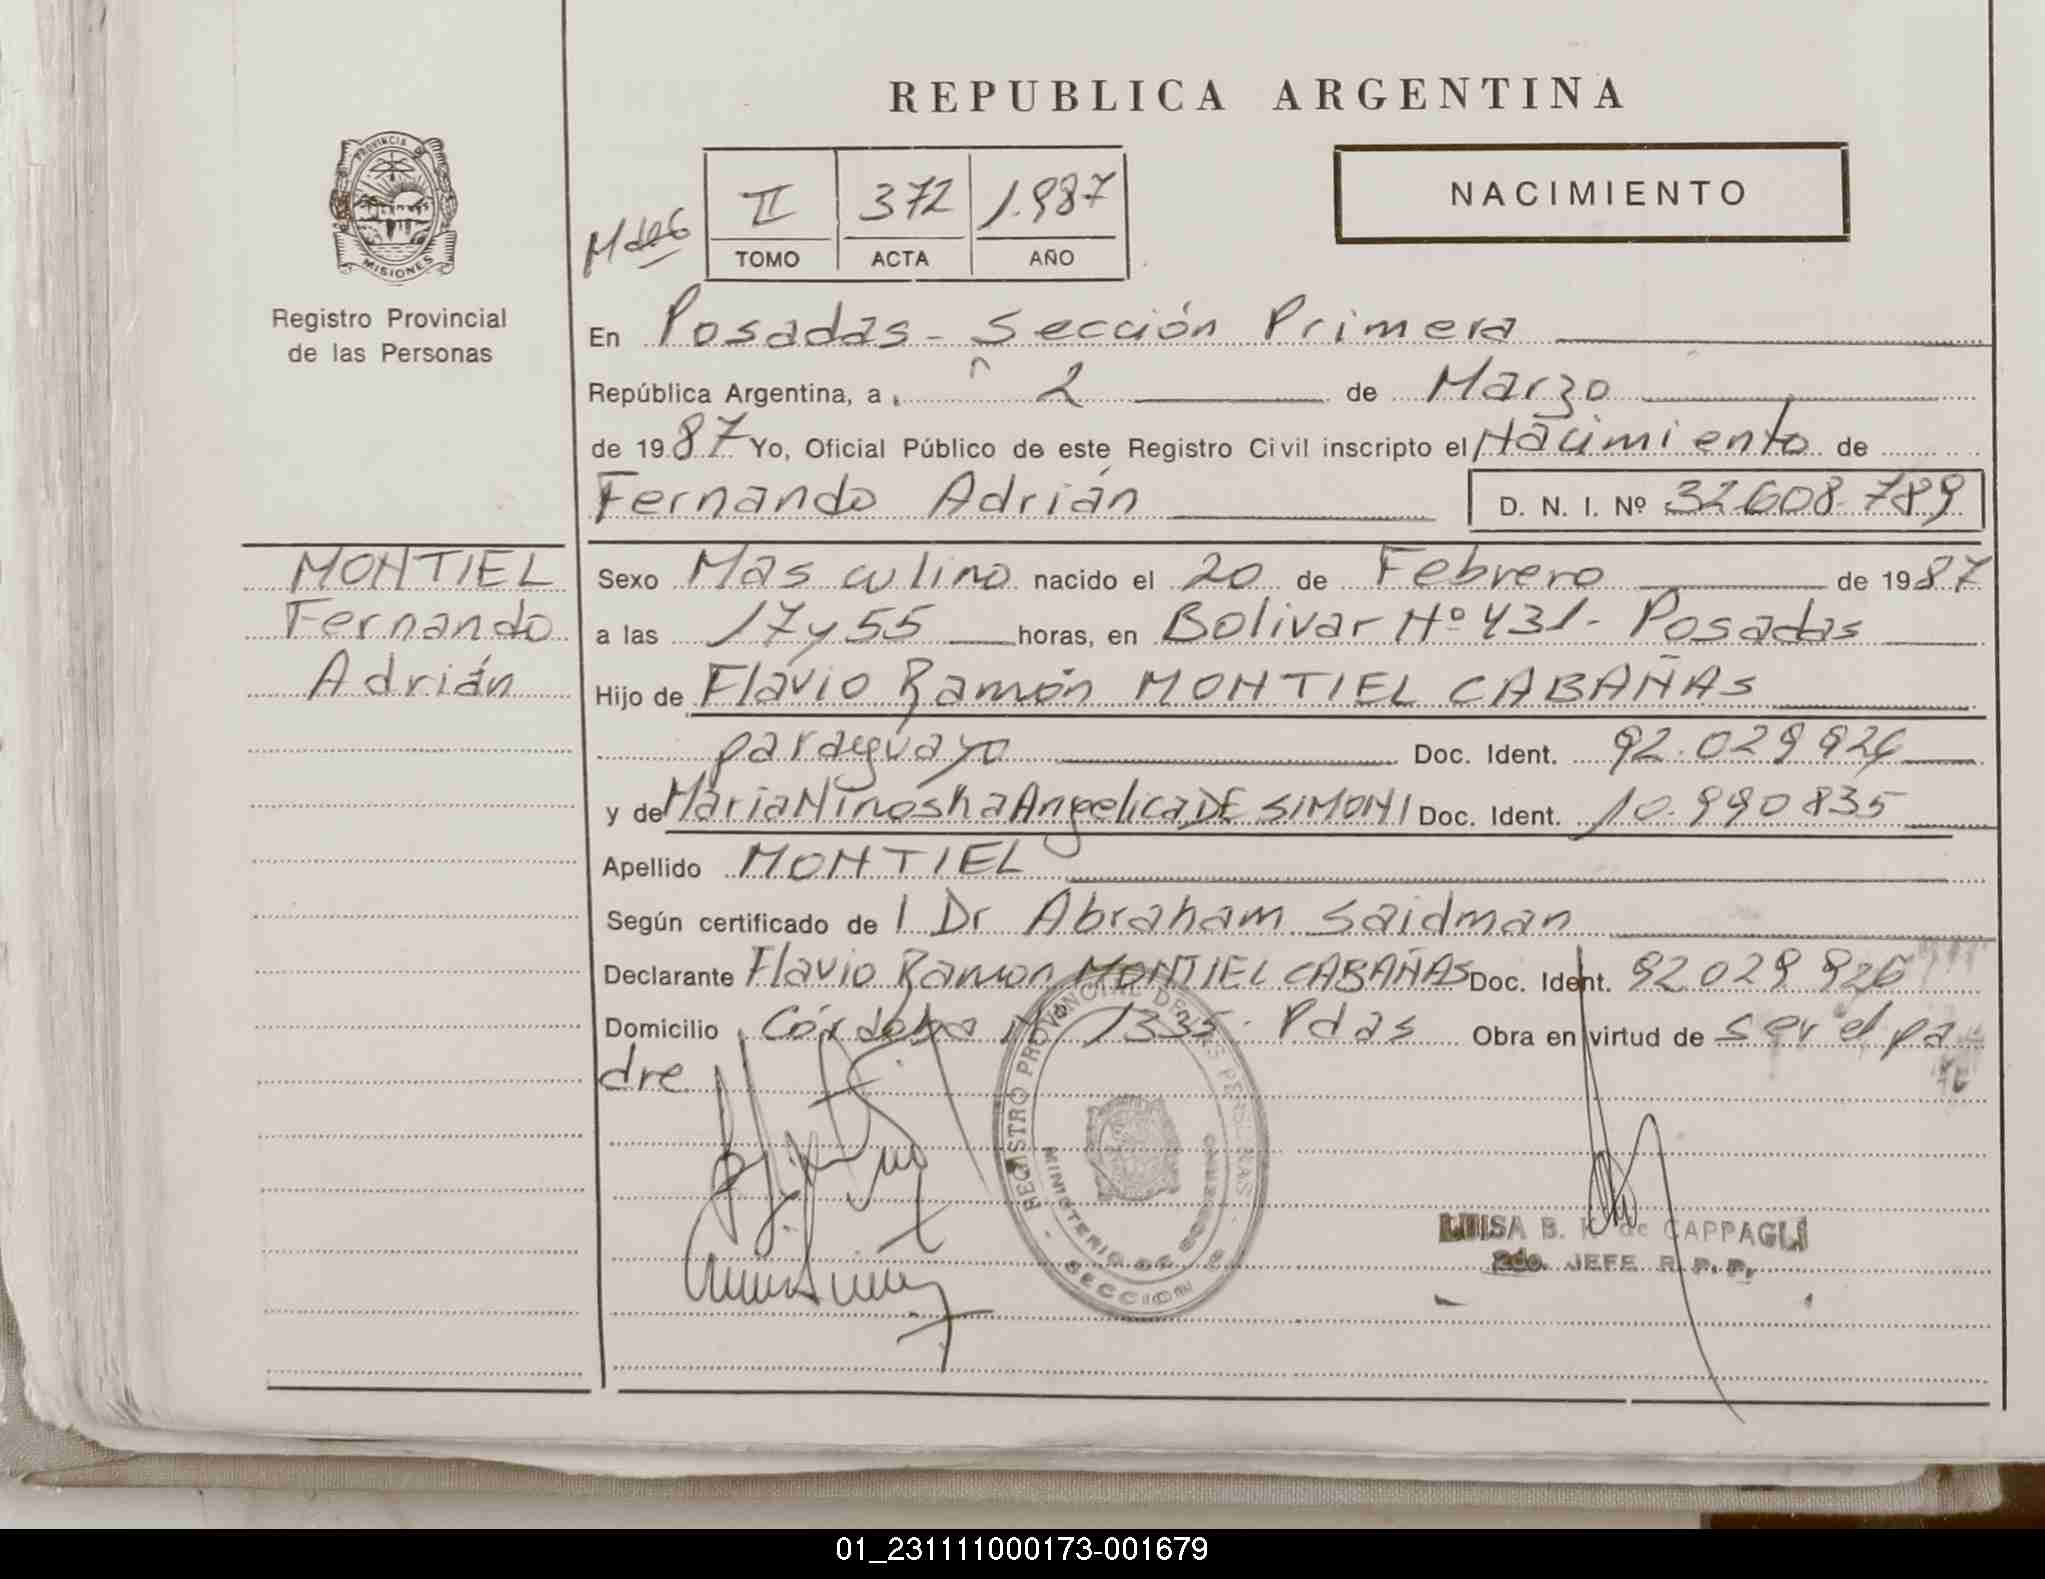 REPUBLICA ARGENTINA
PROVINCIA DE
MISIONES
Registro Provincial
de las Personas
II 372 1.987
TOMO ACTA AÑO
NACIMIENTO
En Posadas - Sección Primera
República Argentina, a 2 de Marzo
de 1987 Yo, Oficial Público de este Registro Civil inscripto el Nacimiento de
Fernando Adrián D. N. I. Nº 32608789
MONTIEL
Fernando
Adrián
Sexo Masculino nacido el 20 de Febrero de 1987
a las 17 y 55 horas, en Bolivar Nº 431 - Posadas
Hijo de Flavio Ramón MONTIEL CABAÑAS
paraguayo Doc. Ident. 92.029926
y de Maria Ninoska Angelica DE SIMONI Doc. Ident. 10.990835
Apellido MONTIEL
Según certificado de l Dr Abraham Saidman
Declarante Flavio Ramon MONTIEL CABAÑAS Doc. Ident. 92029926
Domicilio Córdoba Nº 1335 - Pdas Obra en virtud de ser el pa
dre
REGISTRO PROVINCIAL DE LAS PERSONAS
MINISTERIO DE GOBIERNO
SECCION
LUISA B. K. de CAPPAGLI
2do. JEFE R. P. P.
01_231111000173-001679